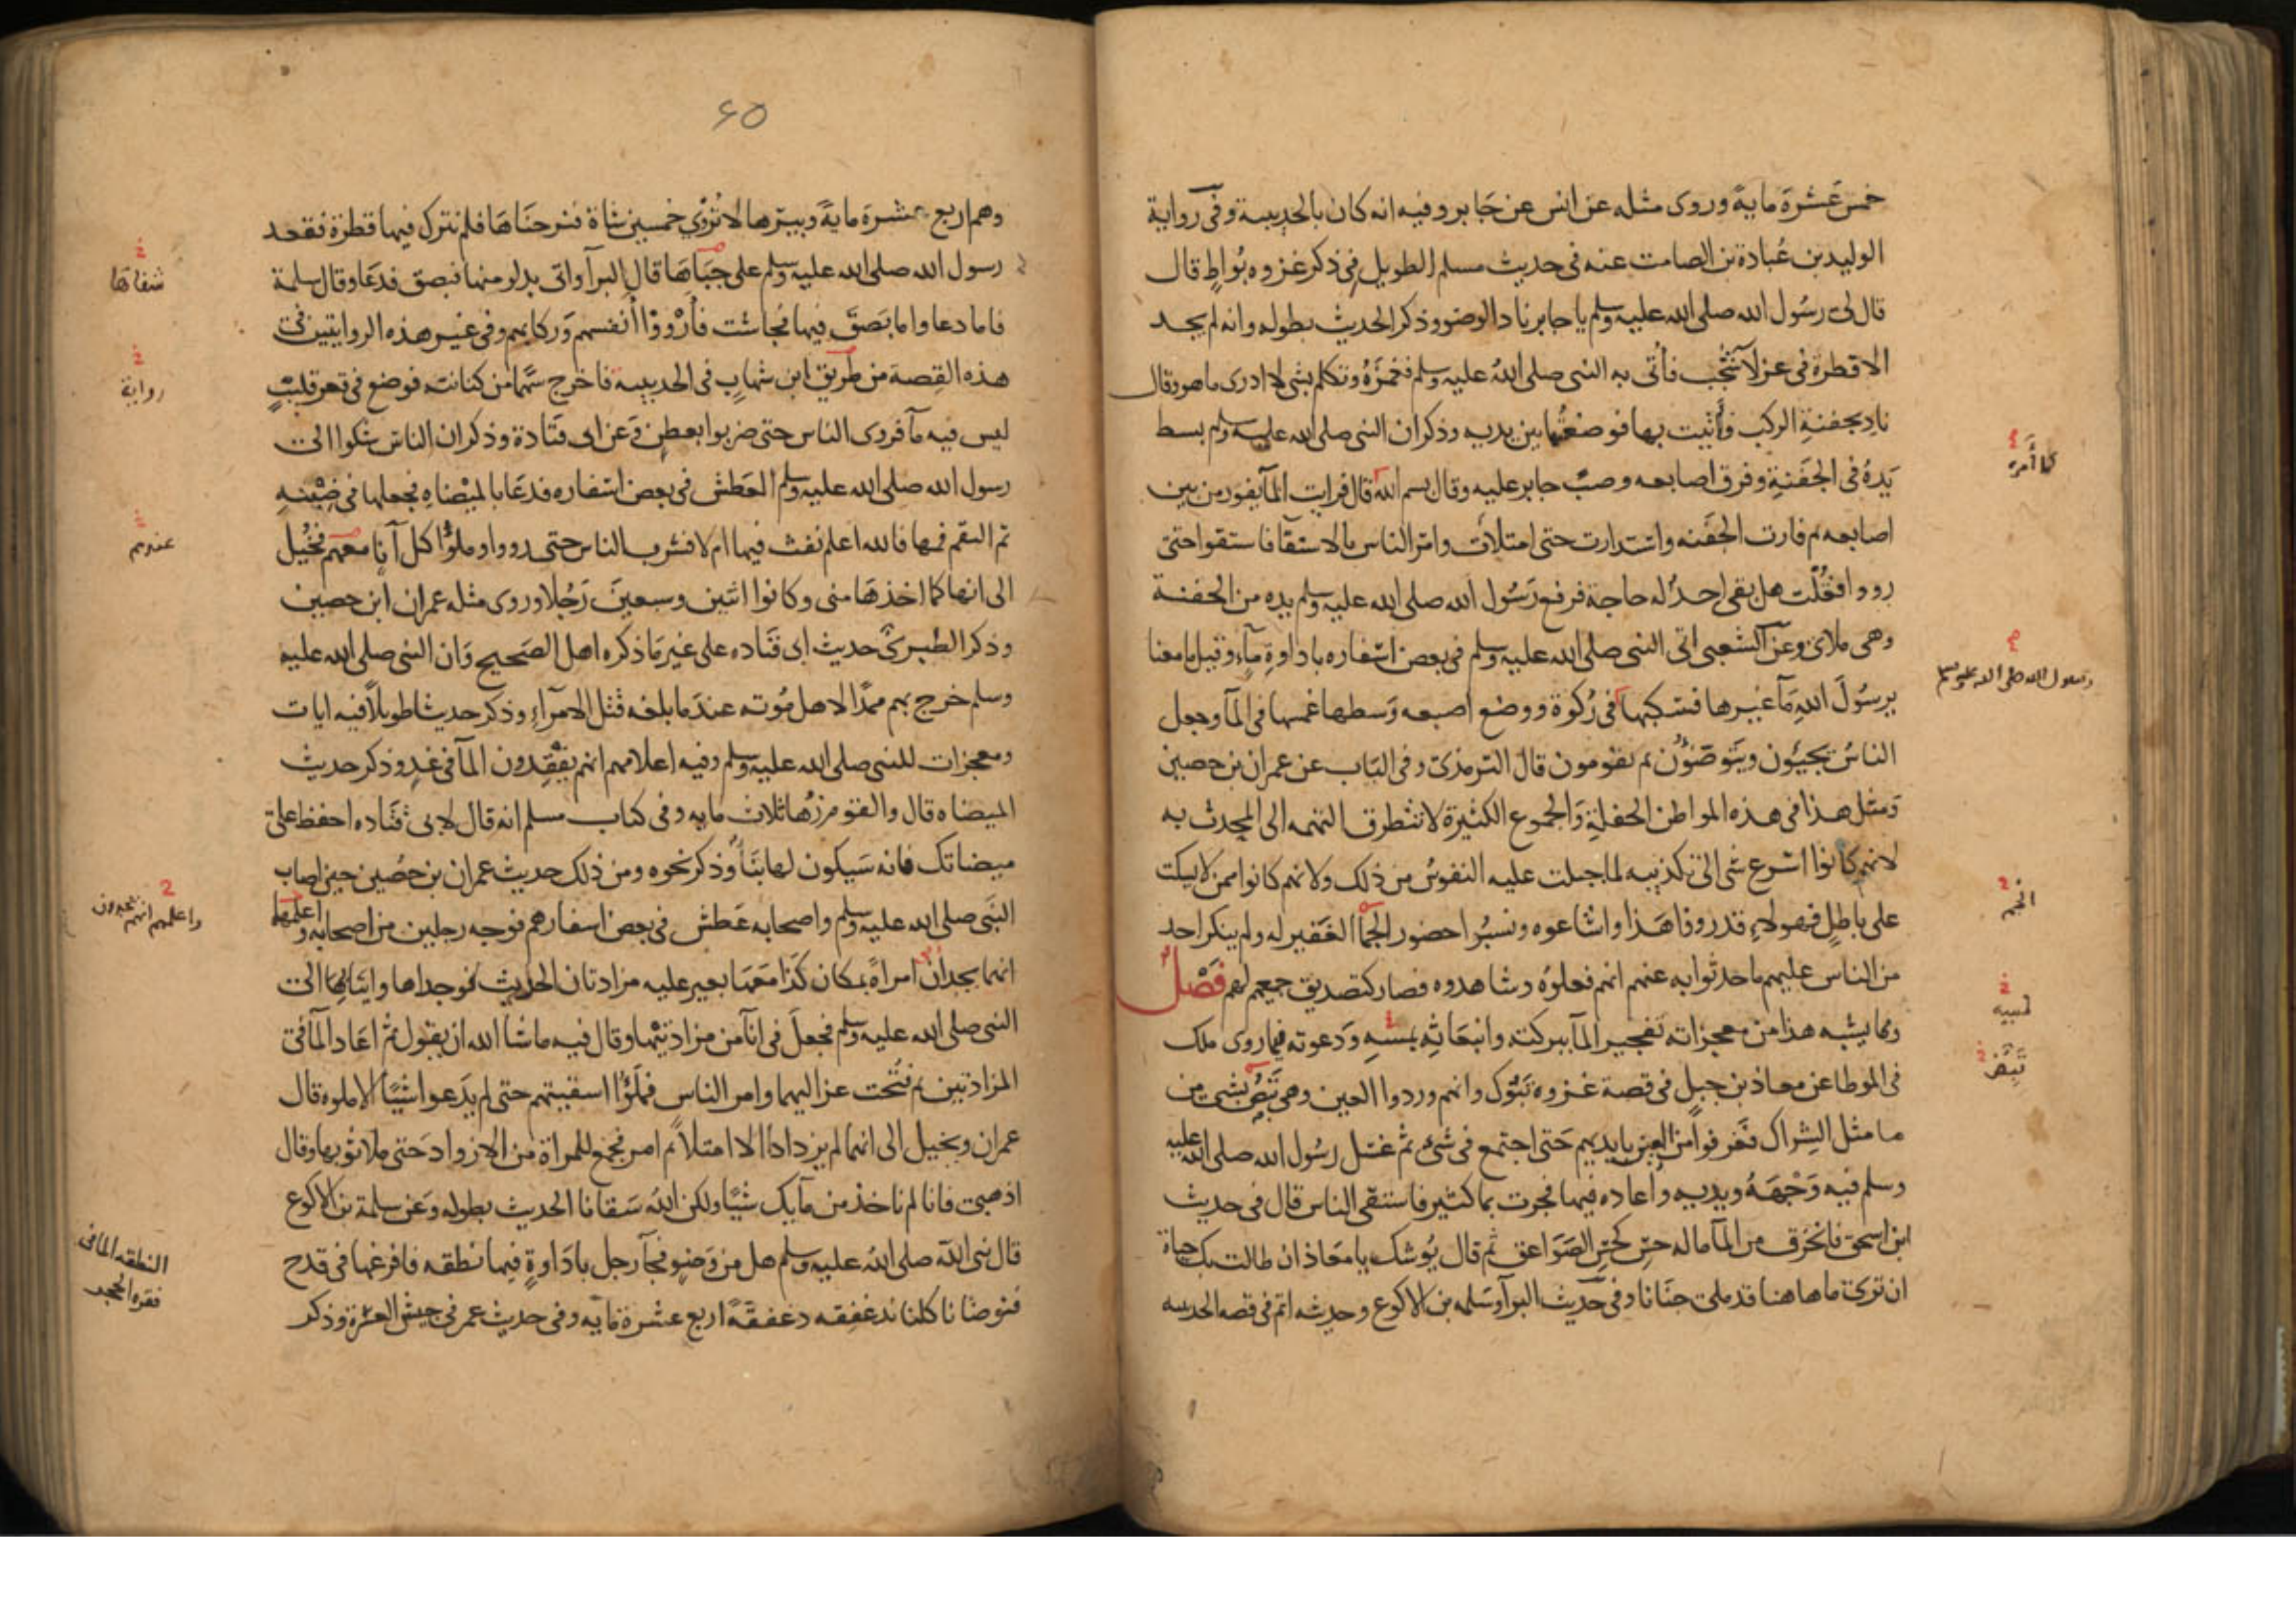 خمس عَشرَة مايةً وروى مثله عن انس عن جَابر وفيه انه كان بالحديبية وفى رواية
الوليد بن عُبادة بن الصامت عنه فى حديث مسلم الطويل فى ذكر غزوه بُواطٍ قال
قال لى رسُول الله صلى الله عليه وسلم يا جابر ناد الوضو وذكر الحديث بطوله وانه لم يجد
الا قطرة فى عزلآ شَجْب فأتى به النبى صلى اللهُ عليه وسلم فغمزَهُ وتكلم بشى لا ادرى ما هو وقال
نادِ بجفنةِ الركب فأتيت بها فوضعتُها بين يديه وذكر ان النبى صلى الله عليه وسلم بسط
يَدهُ فى الجَفَنةِ وفرق اصابعه وصبّ جابر عليه وقال بسم الله قال فرايت المآ يفور من بين
اصابعه ثم فارت الجَفَنه واستدارت حتى امتلات وامر الناس بالاستقآ فاستقوا حتى
رووا فقُلت هل بقى احدٌ له حاجة فرفع رَسُول الله صلى الله عليه وسلم يده من الجفنة
وهى ملاى وعن الشعبى اتى النبى صلى الله عليه وسلم فى بعض اسْفاره باداوةِ مآءٍ وقيل ما معنا
يرسُولَ اللهِ مَآ غيرها فسكبها فى رُكوة ووضع اصبعه وَسطها غمسها فى المآ وجعل
الناسُ يجيئُون ويَتَوضَئُون ثم يقومون قال الترمذى وفى البَاب عن عمران بن حصين
وَمثل هذا فى هذه المواطن الحفلةِ وَالجموع الكثيرة لا تتطرق التهمه الى المحدث به
لانهم كانوا اسْرع شى الى تكذيبه لما جبلت عليه النفوسُ من ذلك ولانهم كانوا ممن لا يسكت
على باطلٍ فهولاءِ قد رووا هَذا واشاعوه ونسبُوا حضور الجمآ الغَفير له ولم ينكر احد
من الناس عليهم ما حدثوا به عنهم انهم فعلوُه وشاهدوه فصار كتصديق جميعهم لهم فَصْلٌ
ومما يشبه هذا من معجزاته تفجير المآ ببركته وانبعَاثِه بمسهِ وَدعوته فيما روى ملك
فى الموطا عن معاذ بن جبلٍ فى قصة غزوه تَبُوك وانهم وردوا العين وهى تَبُض بشى من
ما مثل الشِراك فغرفوا من العين بايديهم حَتى اجتمع فى شىٍ ثمُ غسَل رسُول الله صلى الله عليه
وسلم فيه وَجْهَهُ ويديه واعاده فيها فجرت بما كثيرٍ فاستقى الناس قال فى حديث
ابن اسحق فانخرق من المآ ما له حسٌ كحسّ الصَوَاعق ثم قال يُوشك يا معَاذ ان طالت بك حياة
ان ترى ما هاهنا قد ملى جنَانا وفى حَديث البرآ وسَلمه بن الاكوع وحديثه اتم فى قصه الحديبيه
كما أمره
رسول الله صلى الله عليه وسلم
الجم
تَبِضّ
٦٥
وهم اربع عشرة مايةً وبيرها لا تُرْوِى خمسين شاة فنزحنَاهَا فلم نترك فيها قطرَة فقعد
رسول الله صلى الله عليه وسلم على جَبَاهَا قال البرآ واتى بدلو منها فبصق فدعَا وقال سلمة
فاما دعا واما بَصَقَ فيها فجاشت فأرْووْا أنفسهم وَركابهم وفى غير هذه الروايتين فى
هذه القِصة من طريق ابن شهابٍ فى الحديبية فاخرج سَهما من كنانته فوضع فى قعر قليبٍ
ليس فيه مآ فروى الناس حتى ضربوا بعطنٍ وعن ابى قتَادة وذكر ان الناسَ شكوا الى
رسول الله صلى الله عليه وسلم العَطشَ فى بعض اسْفاره فدعَا بالميْضاهِ فجعلها فى ضِبْنهِ
ثم التقم فمها فالله اعلم نفث فيها ام لا فشرب الناس حتى رووا وملؤُا كل اناٍ معهم فخُيل
الى انها كما اخذهَا منى وكانوا اثنين وسبعينَ رَجُلا وروى مثله عمران ابن حصين
وذكر الطبرىُ حديث ابى قتَاده على غير مَا ذكره اهل الصَحيح وَان النبى صلى الله عليه
وسلم خرج بهم ممدًا لاهل مُوته عندَ ما بلغه قتل الامرآءِ وذكر حديثا طويلاً فيه ايات
ومعجزات للنبى صلى الله عليه وسلم وفيه اعلامهم انهم يفقدون المآ فى غدٍ وذكر حديث
الميضاه قال والقوم زُهَا ثلاث مايه وفى كتاب مسلم انه قال لابى قتَاده احفظ على
ميضاتك فانه سَيكون لها نبَأ وذكر نحوه ومن ذلك حديث عمران بن حُصَين حين اصاب
النَبى صلى الله عليه وسلم واصحابه عَطش فى بعض اسفارهم فوجه رجلين من اصحابه واعلمهما
انهما يجدان امراةً بمكان كَذا مَعَهَا بعير عليه مزادتان الحديث فوجداها واتيَا بها الى
النبى صلى الله عليه وسلم فجعلَ فى انآ من مزادتيْها وقال فيه ما شا الله ان يقول ثمُ اعَاد المآ فى
المزادتين ثم فُتحت عزاليهما وامر الناس فملَؤُا اسقيتهم حتى لم يَدعوا شيًا الا ملوه قال
عمران ويخيل الى انهما لم يزدادا الا امتلاً ثم امر فجمع للمراة من الازواد حَتى ملا ثوبها وقال
اذهبى فانا لم ناخذ من مآيك شيًا ولكن اللهُ سَقانا الحديث بطوله وَعن سلمة بن الاكوع
قال نبى الله صلى اللهُ عليه وسلم هل من وَضوٍ فجآ رجل بادَاوةٍ فيها نطقه فافرغها فى قدح
فتوضانا كلنا ندغفِقه دغفقةً اربع عشرة مايه وفى حديث عمر فى جيش العسْرة وذكر
شفاها
رواية
عندهم
واعلمهم انهم يجدون
النطقه الما فى